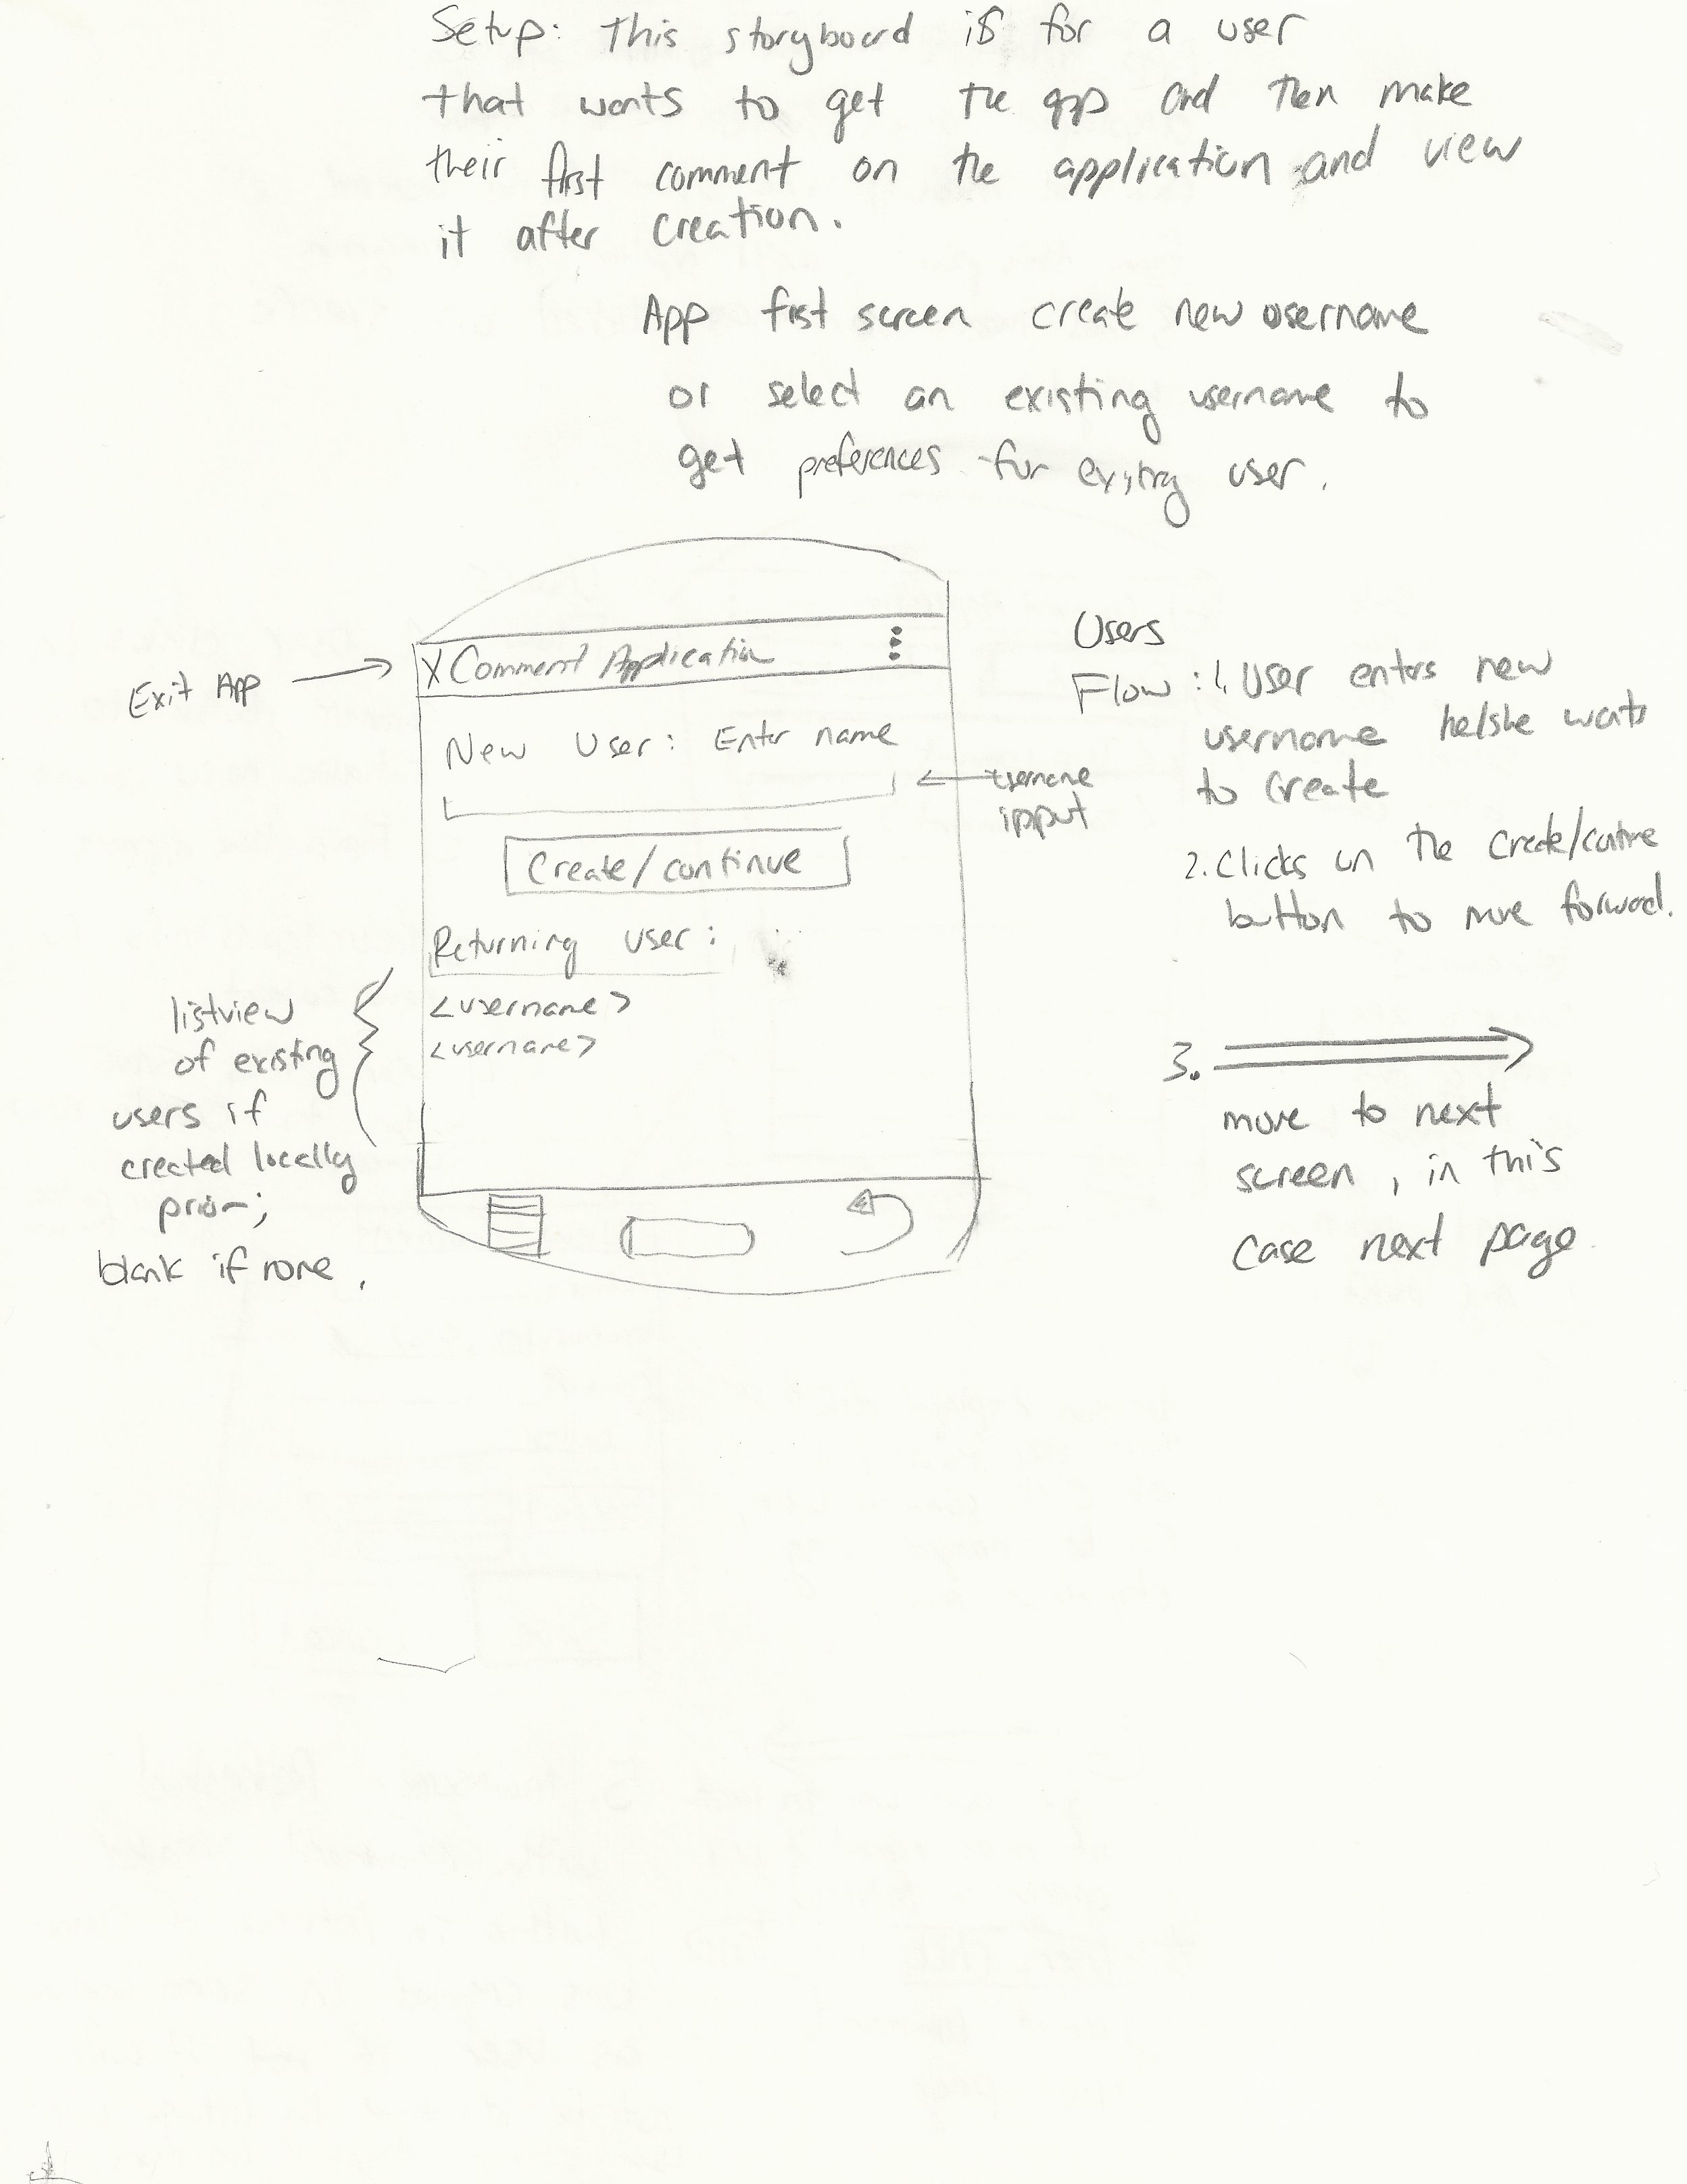 Setup: This storyboard is for a user
that wants to get the app and then make
their first comment on the application and view
it after creation.
App fist screen create new username
or select an existing username to
get preferences for exiting user.
Exit App
X Comment Application
New User: Enter name
username
input
Create/continue
Returning user:
<username>
<username>
listview
of existing
users if
created locally
prior;
blank if none.
Users
Flow: 1. User enters new
username he/she wants
to create
2. Clicks on the create/continue
button to move forward.
3.
move to next
screen, in this
case next page